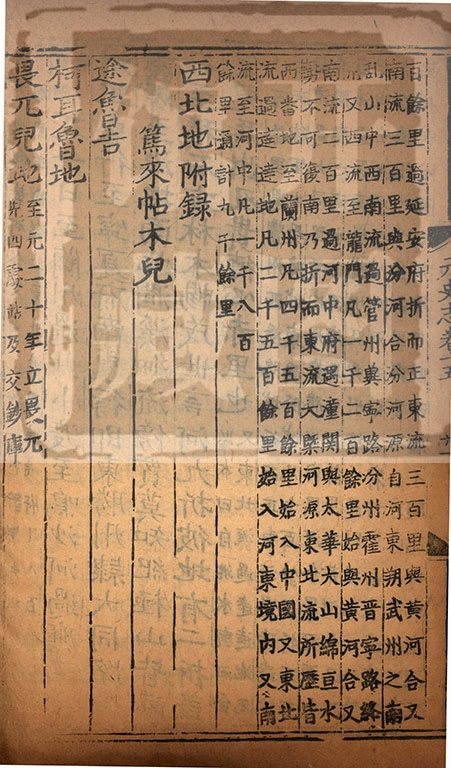 百餘里過延安府折而正東流三百里與黃河合又
南流三百里與汾河合汾河源自河東朔武州之南
亂山中西南流過管州兾寧路汾州霍州晉寧路絳
州又西流至龍門凡一千二百餘里始與黃河合又
南流二百里過河中府過潼關與太華大山綿亘水
勢不可復南乃折而東流大槩河源東北流所歷皆
西番地至蘭州凡四千五百餘里始入中國又東北
流過達達地凡二千五百餘里始入河東境內又南
流至河中凡一千八百
餘里通計九千餘里
西北地附録
篤來帖木兒
途魯吉
柯耳魯地
畏兀兒地至元二十年立畏兀
兒四處站及交鈔庫